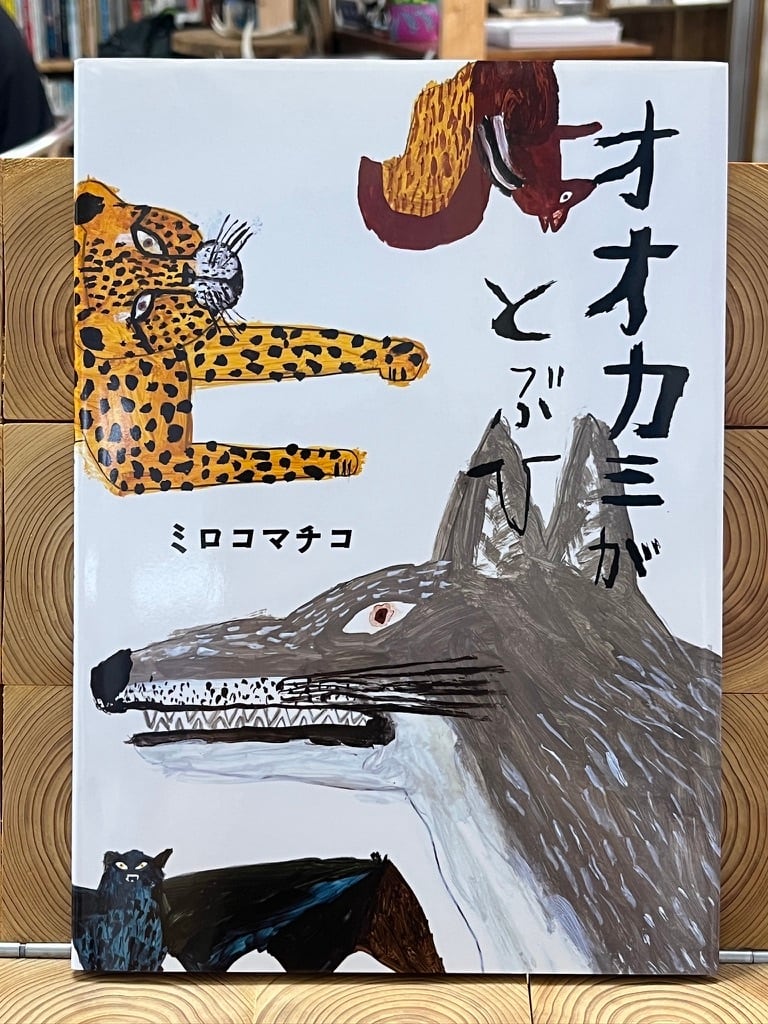 オオカミが
とぶひ
ミロコマチコ